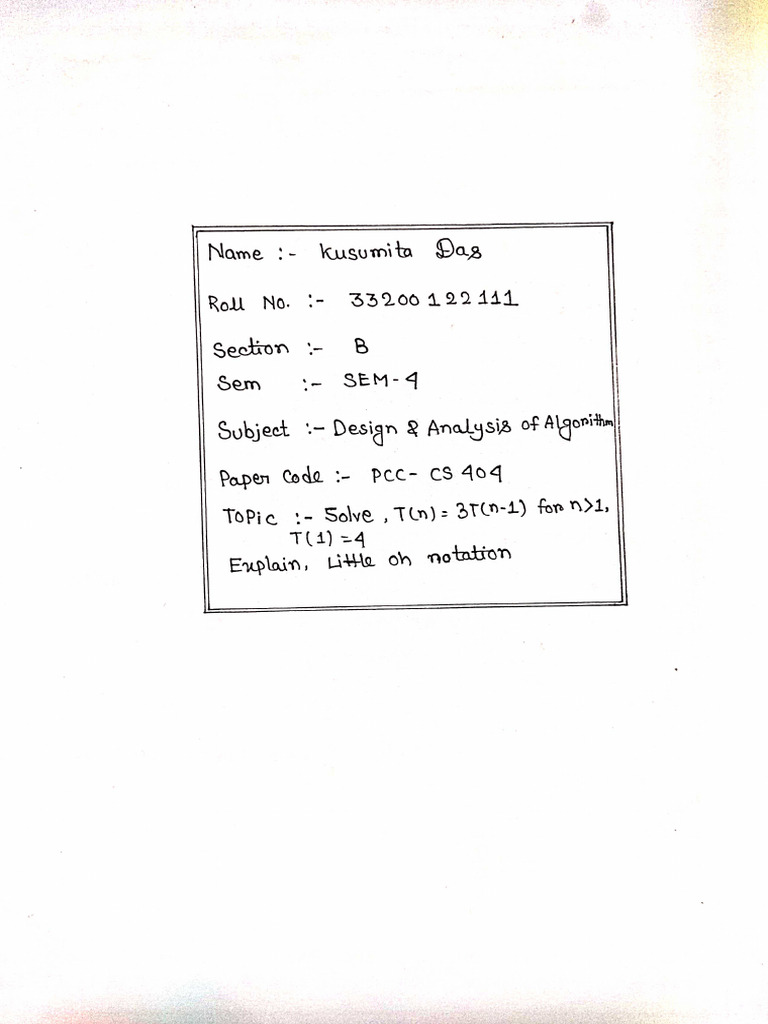 Name :- Kusumita Das
Roll No. :- 33200122111
Section :- B
Sem :- SEM-4
Subject :- Design & Analysis of Algorithm
Paper Code :- PCC- CS 404
Topic :- Solve, T(n) = 3T(n-1) for n>1,
T(1) = 4
Explain, Little oh notation